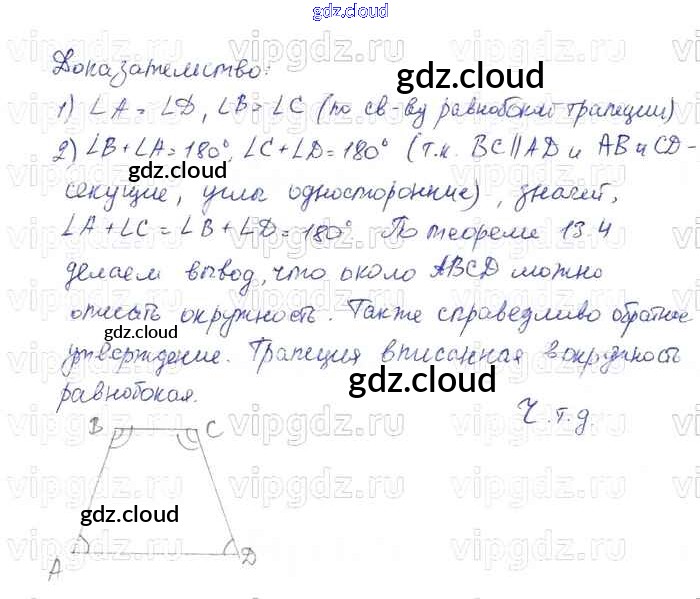 gdz.cloud
Доказательство:
gdz.cloud
1) ∠A = ∠D, ∠B = ∠C (по св-ву равнобокой трапеции)
2) ∠B + ∠A = 180°, ∠C + ∠D = 180° (т.к. BC || AD и AB и CD -
gdz.cloud
секущие, углы односторонние), значит,
∠A + ∠C = ∠B + ∠D = 180°. По теореме 13.4
делаем вывод, что около ABCD можно
описать окружность. Также справедливо обратное
gdz.cloud
утверждение. Трапеция вписанная в окружность
gdz.cloud
равнобокая.
Ч.т.д.
B C
gdz.cloud
A D
vipgdz.ru vipgdz.ru vipgdz.ru